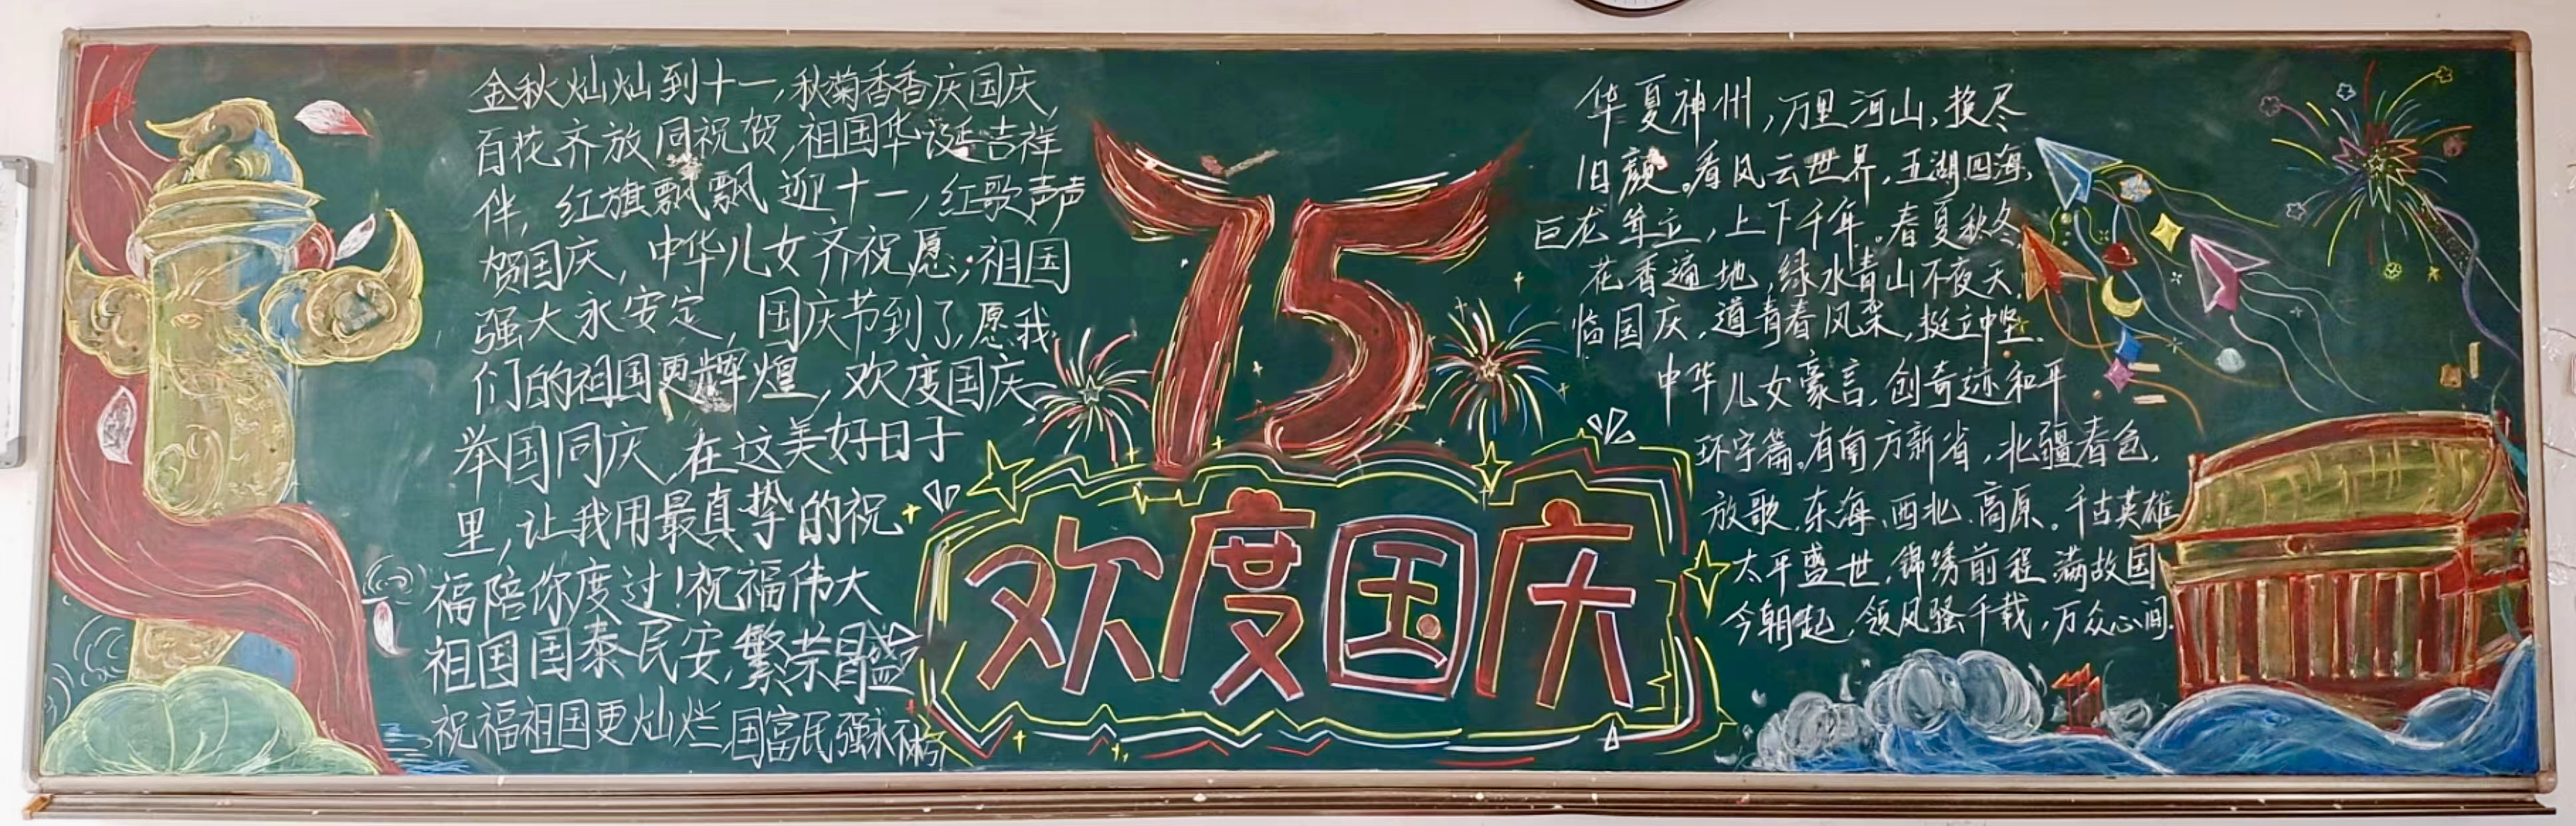 金秋灿灿到十一,秋菊香香庆国庆,
百花齐放同祝贺,祖国华诞吉祥
伴,红旗飘飘迎十一,红歌声声
贺国庆,中华儿女齐祝愿;祖国
强大永安定,国庆节到了,愿我
们的祖国更辉煌,欢度国庆,
举国同庆,在这美好日子
里,让我用最真挚的祝
福陪你度过!祝福伟大
祖国国泰民安,繁荣昌盛
祝福祖国更灿烂国富民强永不
75
欢度国庆
华夏神州,万里河山,换尽
旧颜。看风云世界,五湖四海,
巨龙耸立,上下千年。春夏秋冬
花香遍地,绿水青山不夜天,
临国庆,道青春风采,挺立中坚.
中华儿女豪言,创奇迹和平
环宇篇。有南方新省,北疆春色,
放歌、东海、西北、高原。千古英雄
太平盛世,锦绣前程满故国
今朝起,领风骚千载,万众心间.